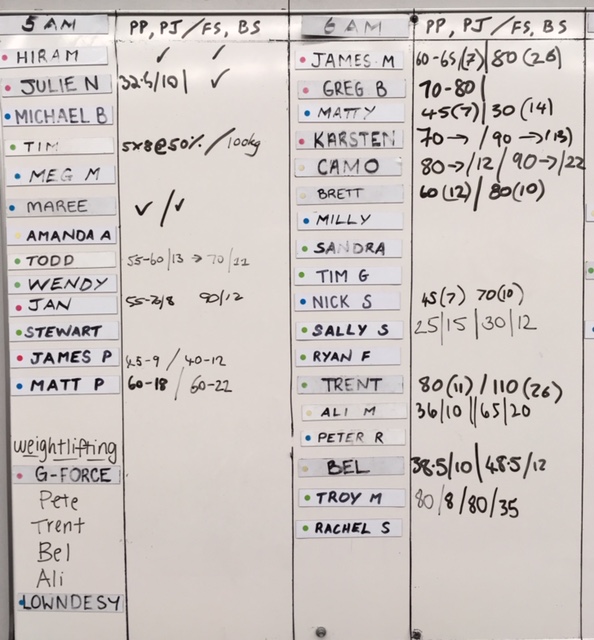 5 AM PP, PJ / FS, BS
HIRAM ✓ ✓
JULIE N 32.5/10| ✓
MICHAEL B
TIM 5x8@50% / 100kg
MEG M
MAREE ✓ / ✓
AMANDA A
TODD 55-60/13 → 70/11
WENDY
JAN 90/12
STEWART
JAMES P 45-9 / 40-12
MATT P 60-18 / 60-22
weightlifting
G-FORCE
Pete
Trent
Bel
Ali
LOWNDESY
6 AM PP, PJ / FS, BS
JAMES M 60-65/(7)| 80 (26)
GREG B 70-80|
MATTY 45(7)| 30 (14)
KARSTEN 70→ / 90 →(13)
CAMO 80→/12 / 90→/22
BRETT 60 (12) / 80(10)
MILLY
SANDRA
TIM G
NICK S 45(7) 70(10)
SALLY S 25|15 | 30|12
RYAN F
TRENT 80 (11) / 110 (26)
ALI M 36/10 || 65/20
PETER R
BEL 38.5/10 | 48.5/12
TROY M 80/8/80/35
RACHEL S